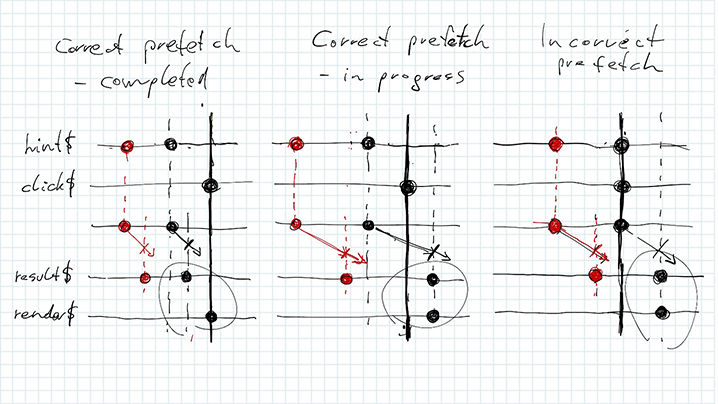 Correct prefetch
- completed
Correct prefetch
- in progress
Incorrect
prefetch
hint$
click$
result$
render$